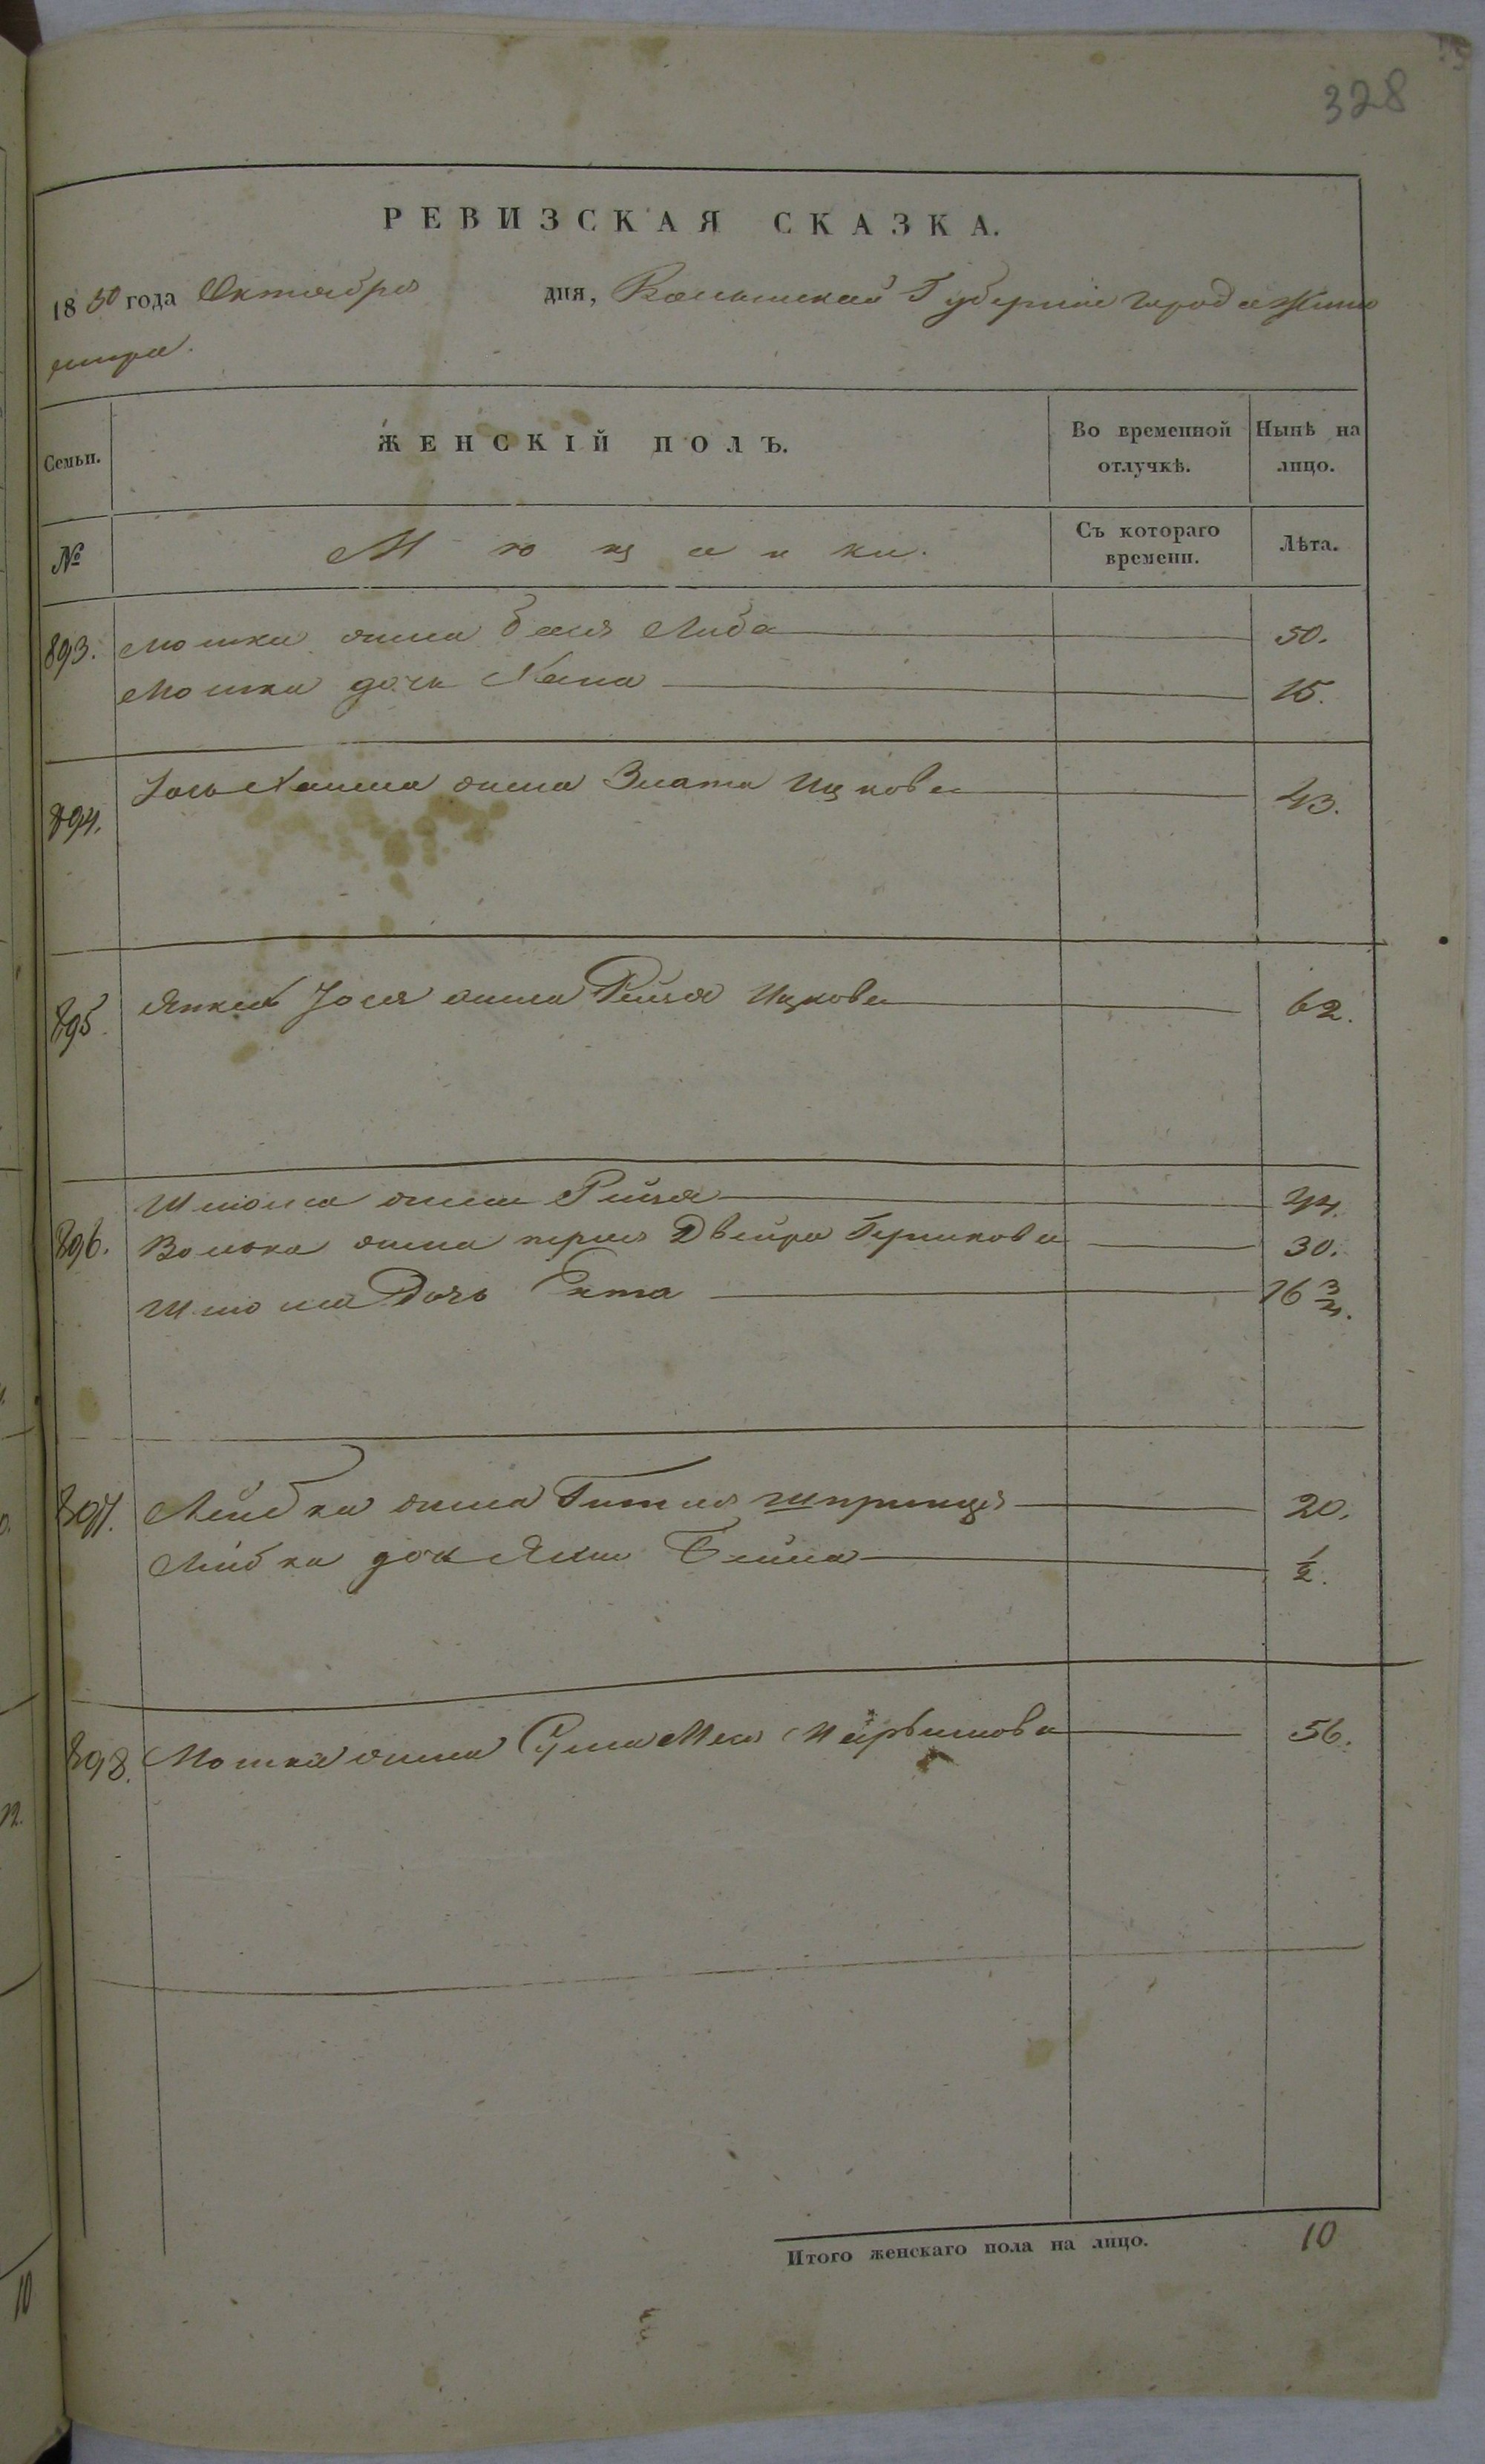 328
РЕВИЗСКАЯ СКАЗКА.
1850 года Октября дня, Волынской Губернии города Жито
мира.
Семьи.
ЖЕНСКІЙ ПОЛЪ.
Во временной отлучкѣ.
Нынѣ на лицо.
№
Мѣщанки.
Съ котораго времени.
Лѣта.
893. Мошка жена Бася Либа 50.
Мошка дочь Хана 15.
894. Іось Хаима жена Злата Ицкова 43.
895. Янкеля Іося жена Рейзя Ицкова 62.
896. Шлюма жена Рейзя 44.
Волька жена перля Двейра Гершкова 30.
Шлюма Дочь Ента 16 3/4.
897. Лейбка жена Гитля шпринця 20.
Лейбка дочь Бейла 1/2.
898. Мошка жена 56.
Итого женскаго пола на лицо. 10
12.
10